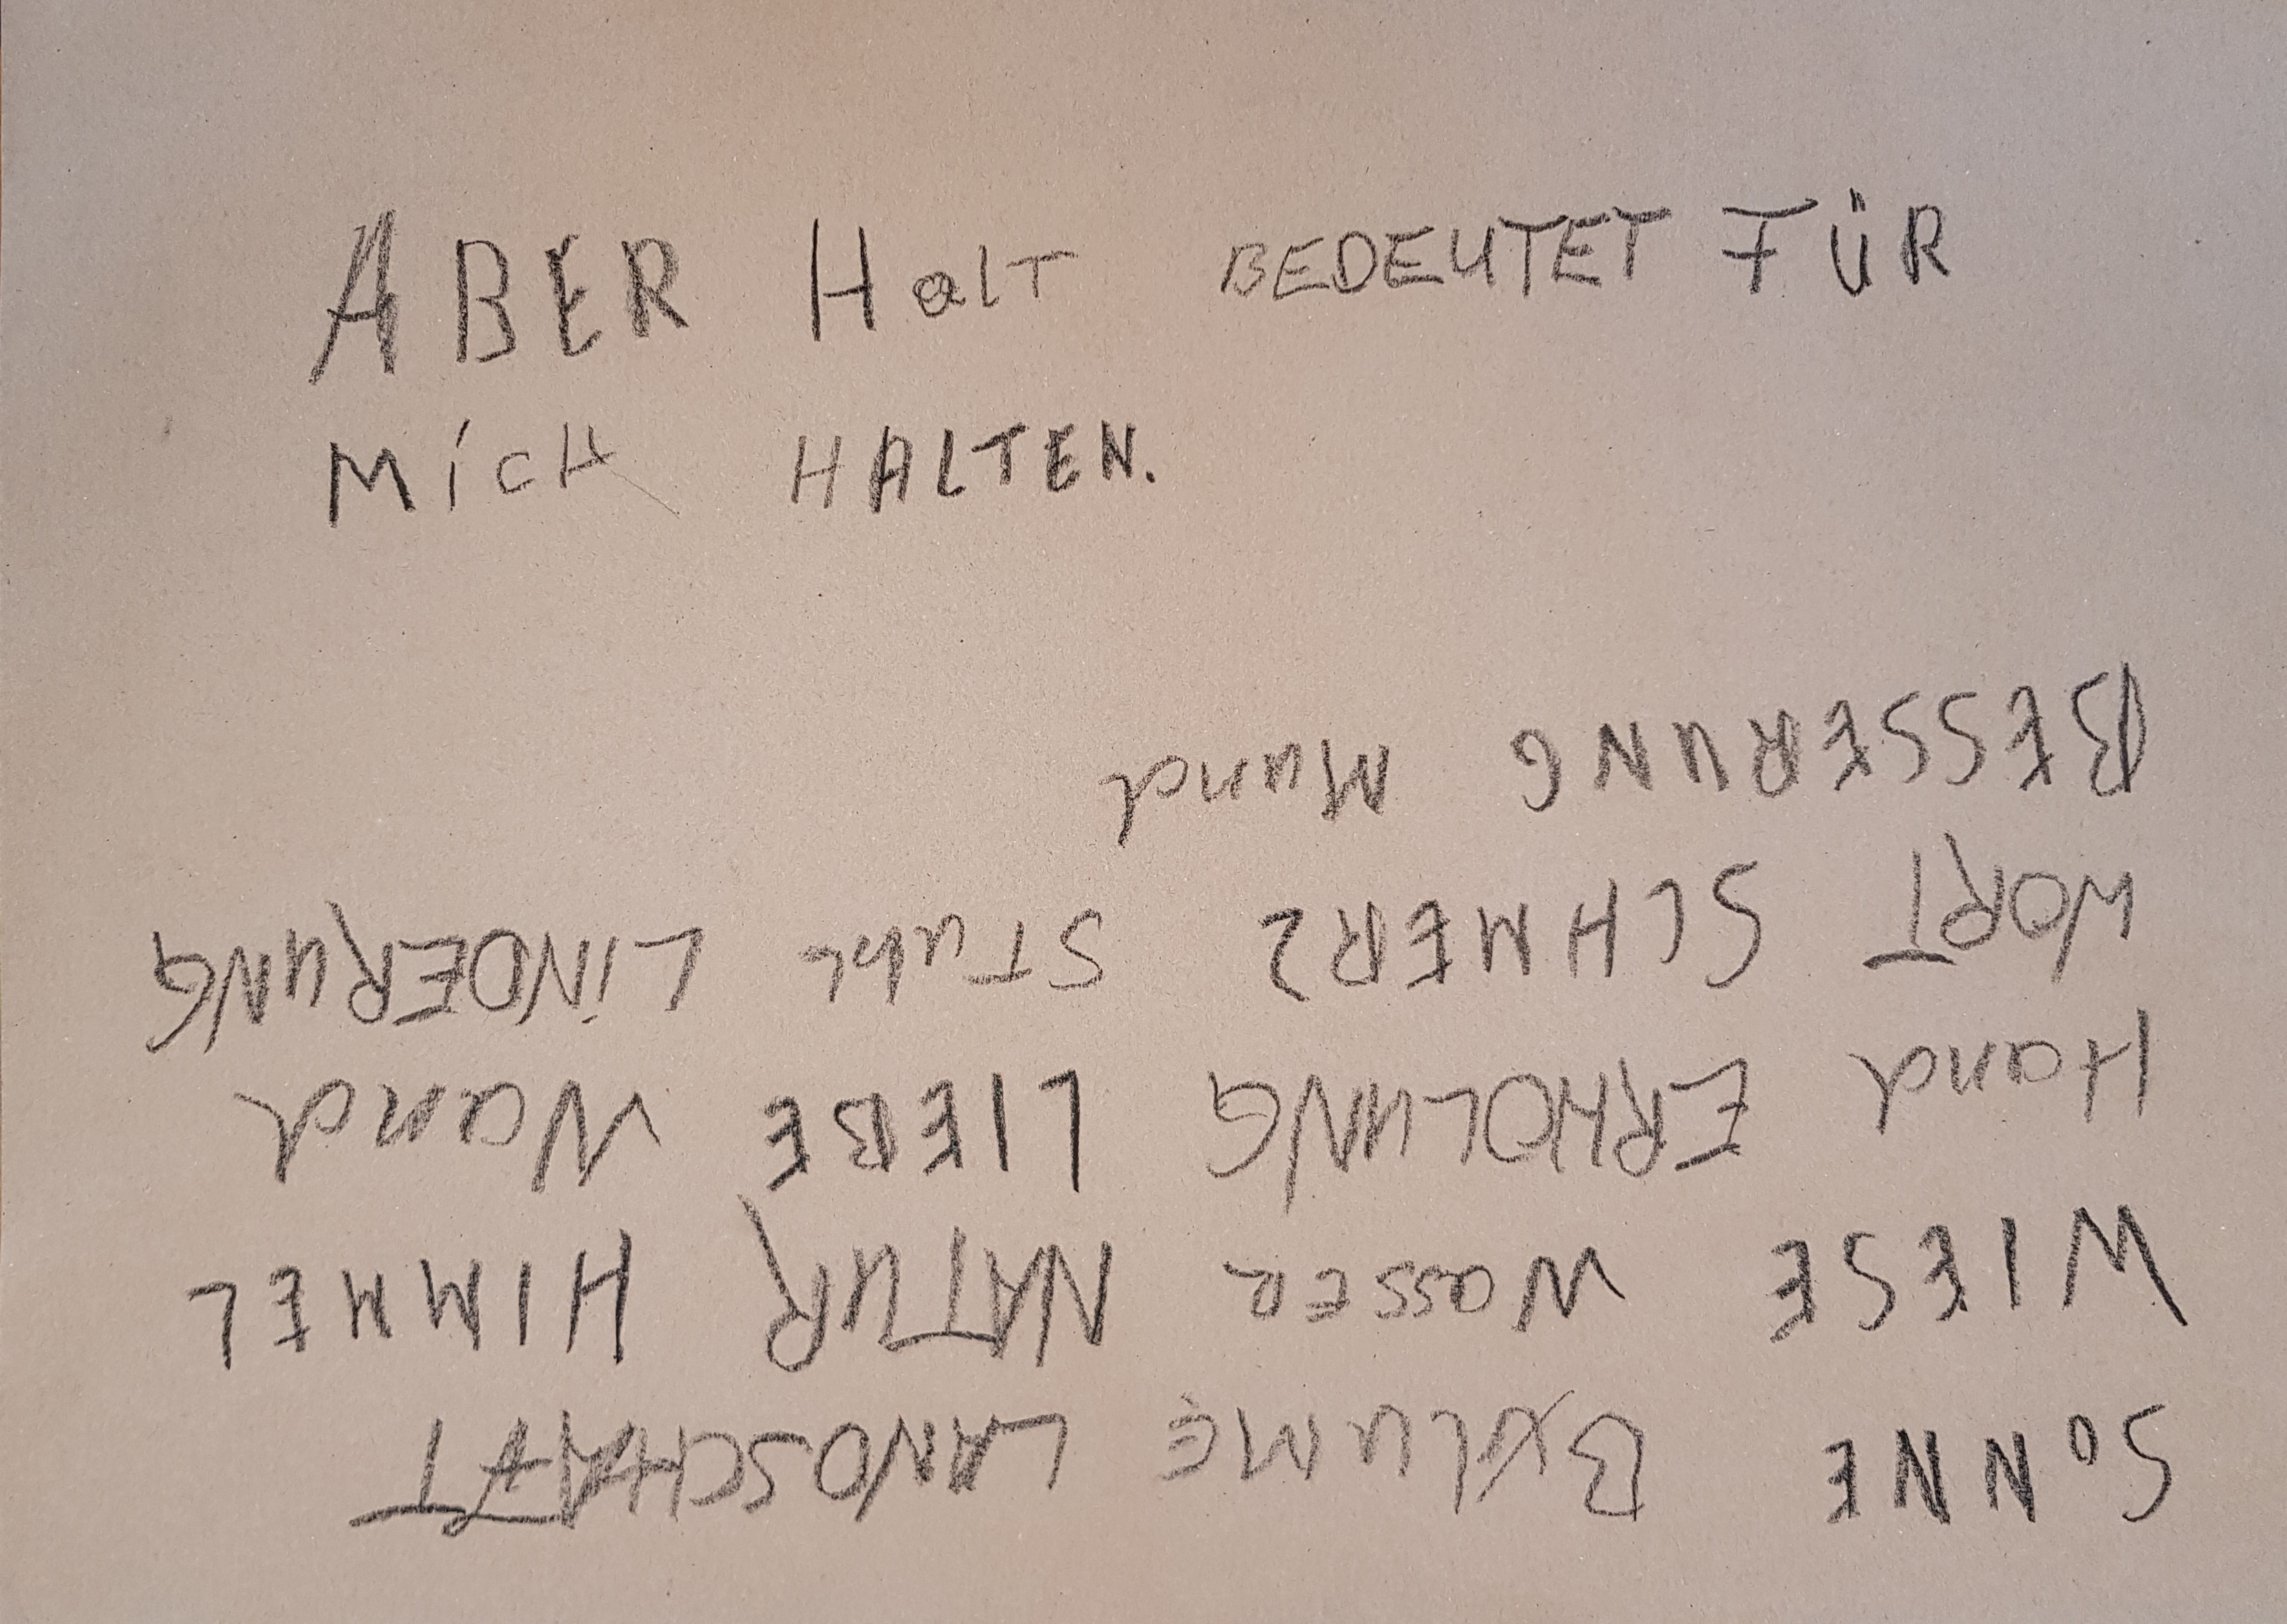 ABER HalT BEDEUTET FÜR
MiCH HALTEN.
SONNE BLUME LANDSCHAFT
WIESE WassER NATUR HIMMEL
Hand ERHOLUNG LIEBE Wand
WORT SCHMERZ STuhl LiNDERUNG
BESSERUNG Mund